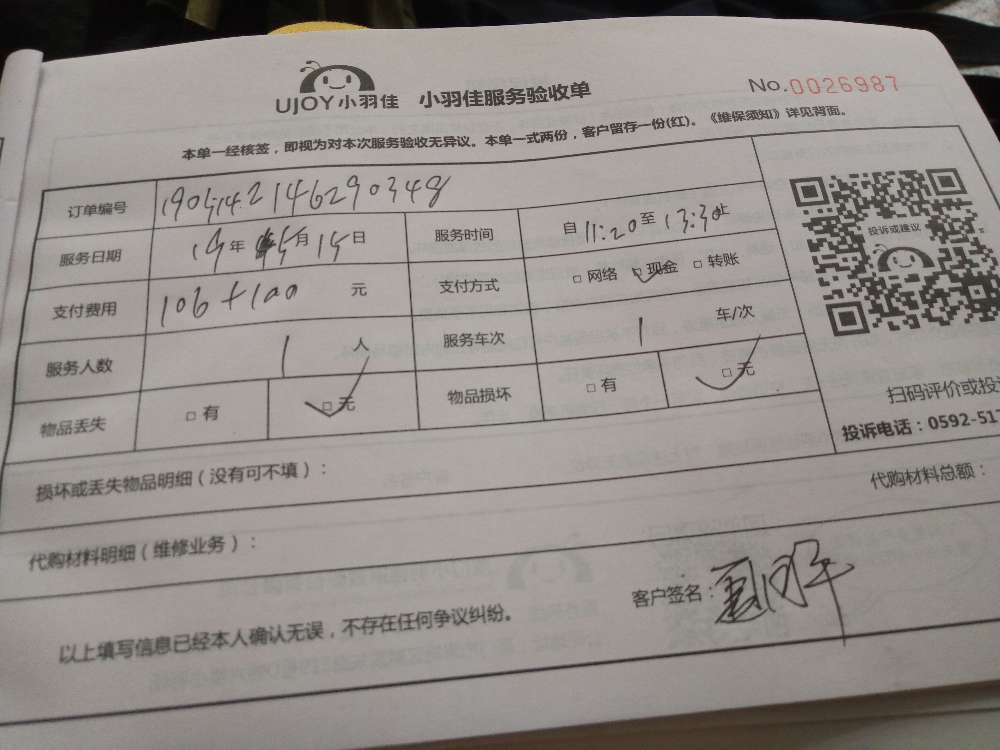 UJOY小羽佳 小羽佳服务验收单 No.0026987
本单一经核签，即视为对本次服务验收无异议。本单一式两份，客户留存一份(红)。《维保须知》详见背面。
订单编号 1905142146290348
服务日期 19年 5月15日 服务时间 自11:20至13:30止
支付费用 106+100 元 支付方式 □网络 □现金 □转账
服务人数 1 人 服务车次 1 车/次
物品丢失 □有 □无 物品损坏 □有 □无
投诉或建议
扫码评价或投
投诉电话：0592-51
损坏或丢失物品明细（没有可不填）：
代购材料明细（维修业务）： 代购材料总额：
以上填写信息已经本人确认无误，不存在任何争议纠纷。 客户签名：